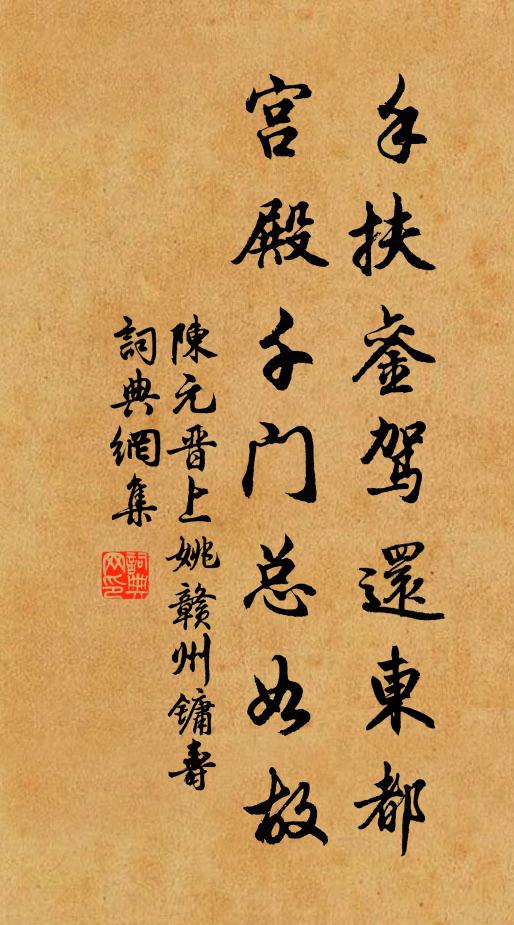 手扶銮駕還東都
宫殿千门总如故
陳元晋上姚贛州鏞壽
詞典網集
詞典網印